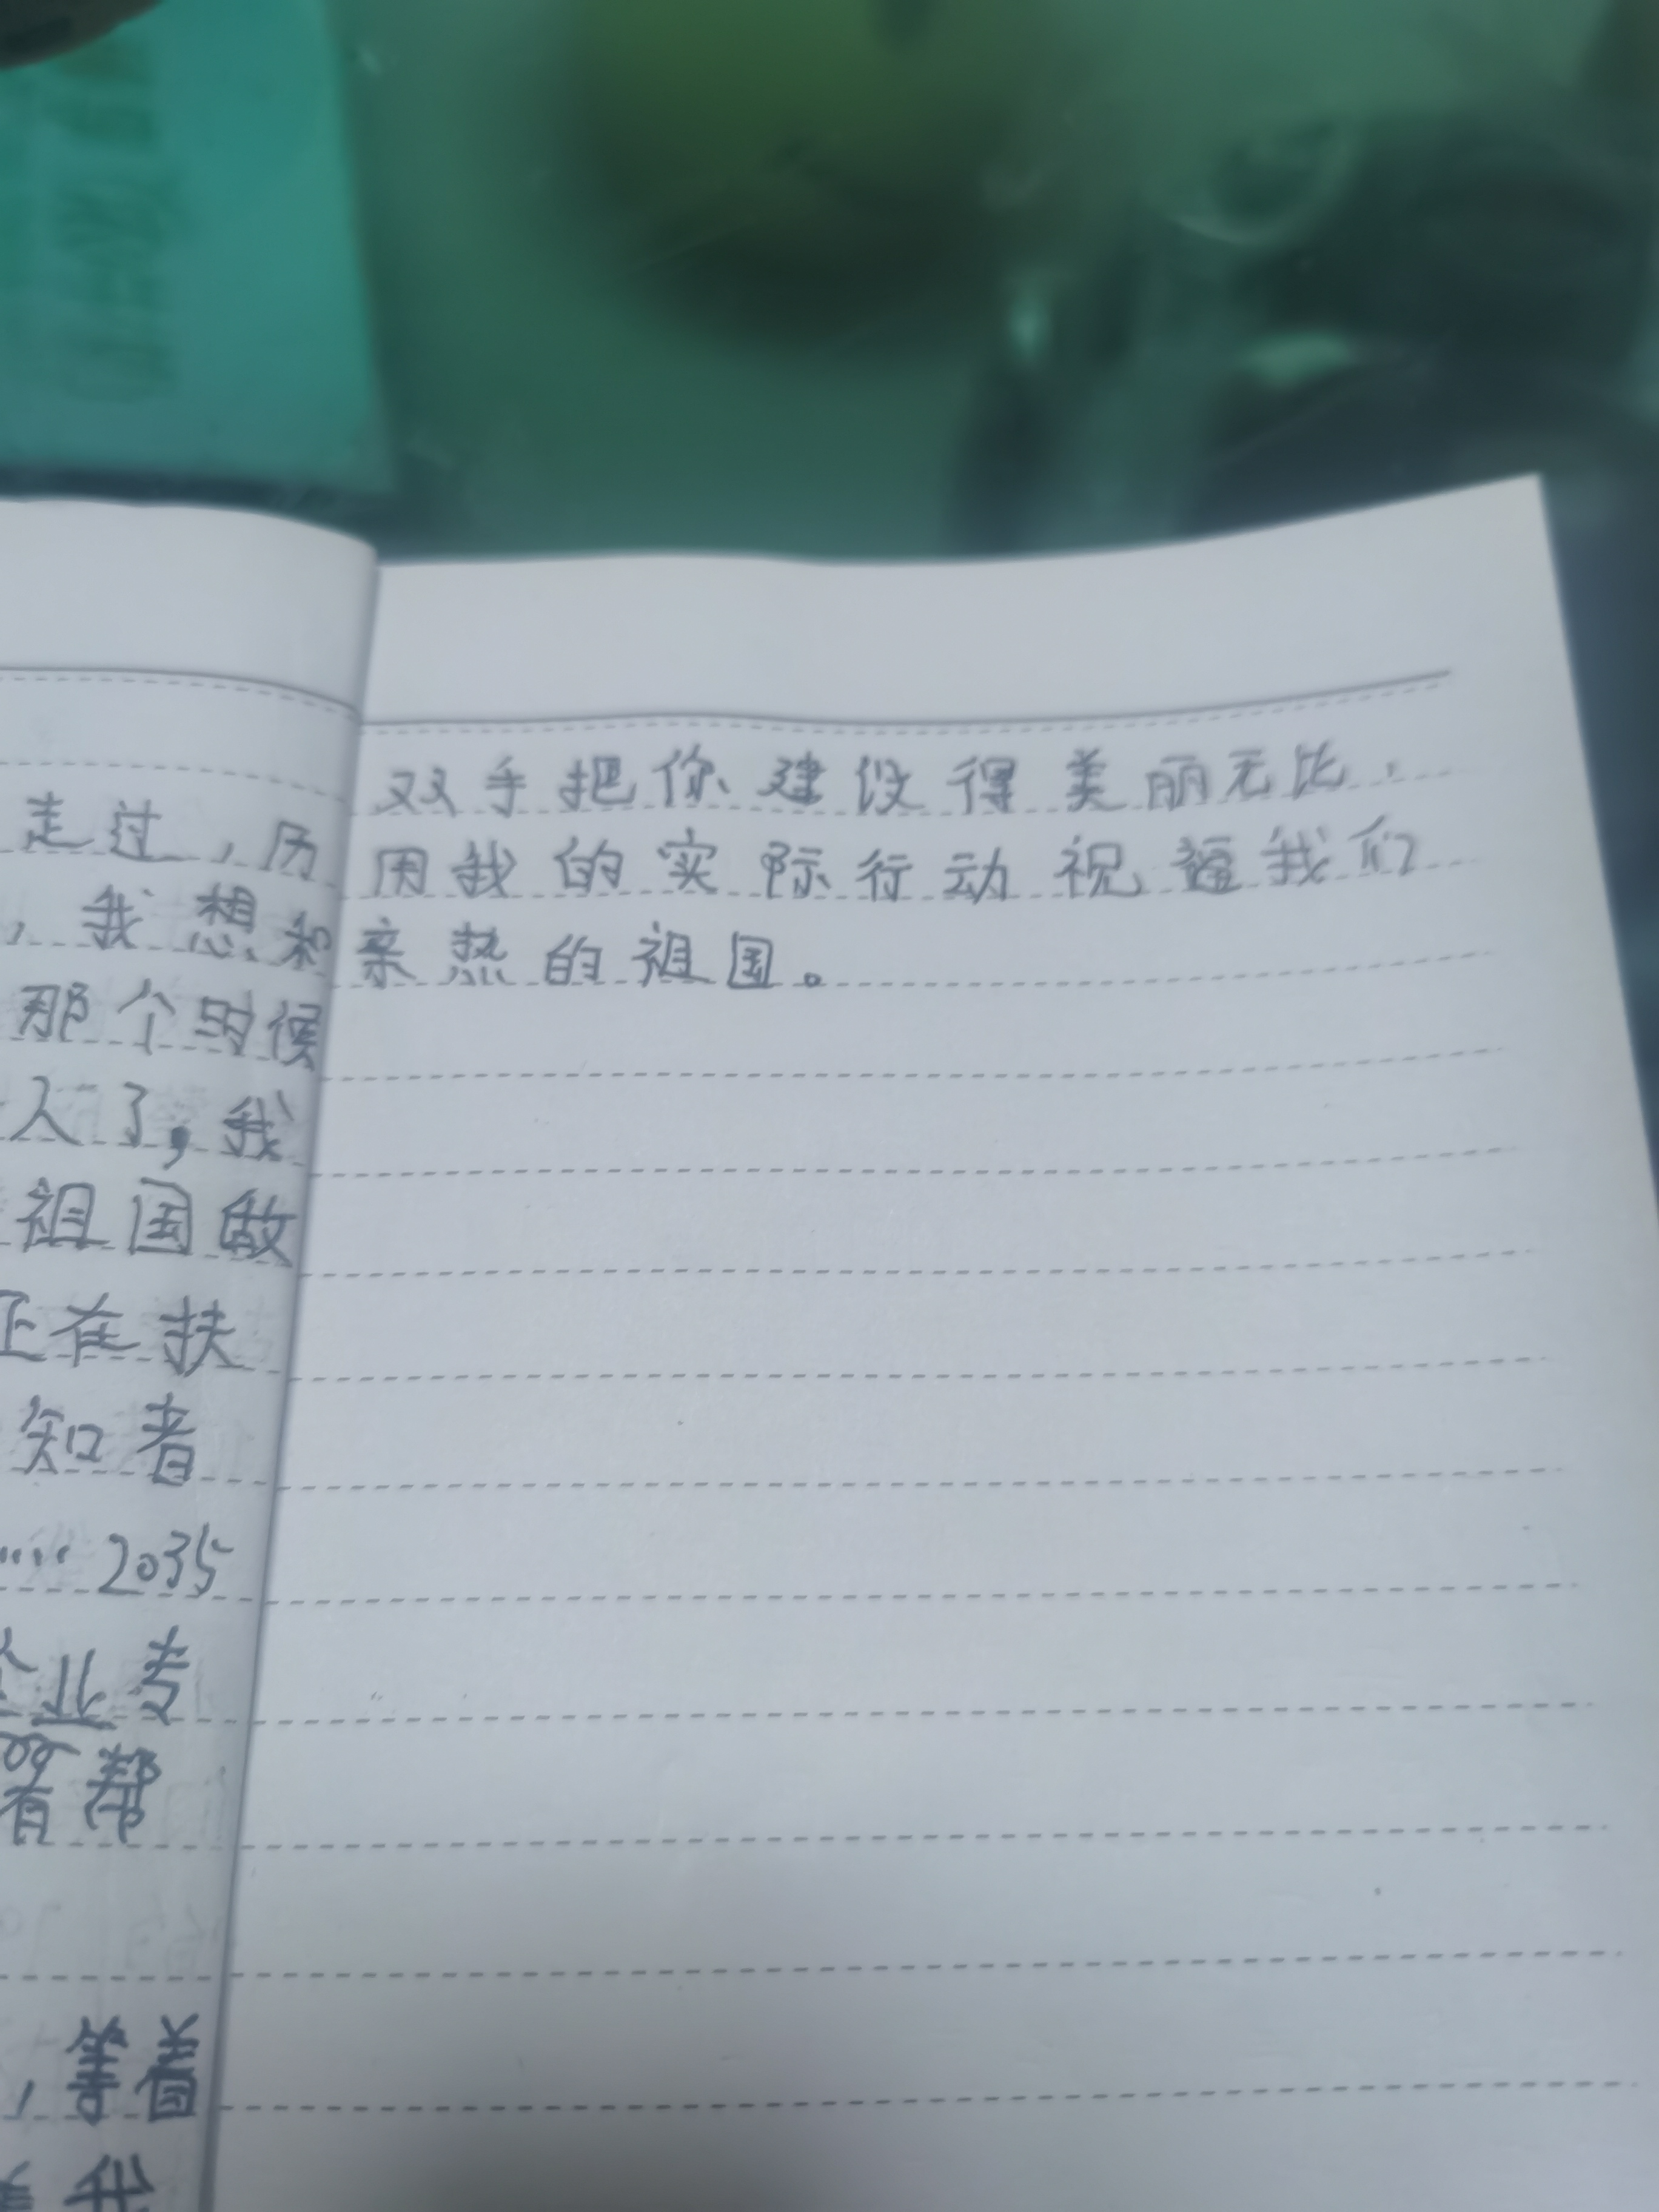 走过，历
，我想和
那个时候
人了，我
祖国做
正在扶
知者
2035
企业专
有帮
，等着
着我
双手把你建设得美丽无比，
用我的实际行动祝福我们
亲热的祖国。